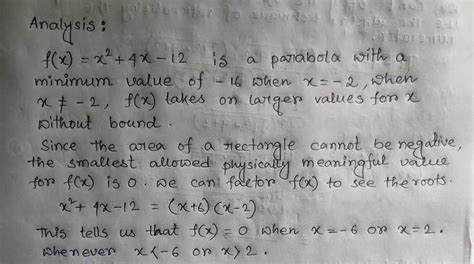 Analysis:
f(x) = x² + 4x - 12 is a parabola with a
minimum value of -16 when x = -2, when
x ≠ -2, f(x) takes on larger values for x
without bound.
Since the area of a rectangle cannot be negative,
the smallest allowed physically meaningful value
for f(x) is 0. We can factor f(x) to see the roots.
x² + 4x - 12 = (x+6)(x-2)
This tells us that f(x) = 0 when x = -6 or x = 2.
whenever x < -6 or x > 2.